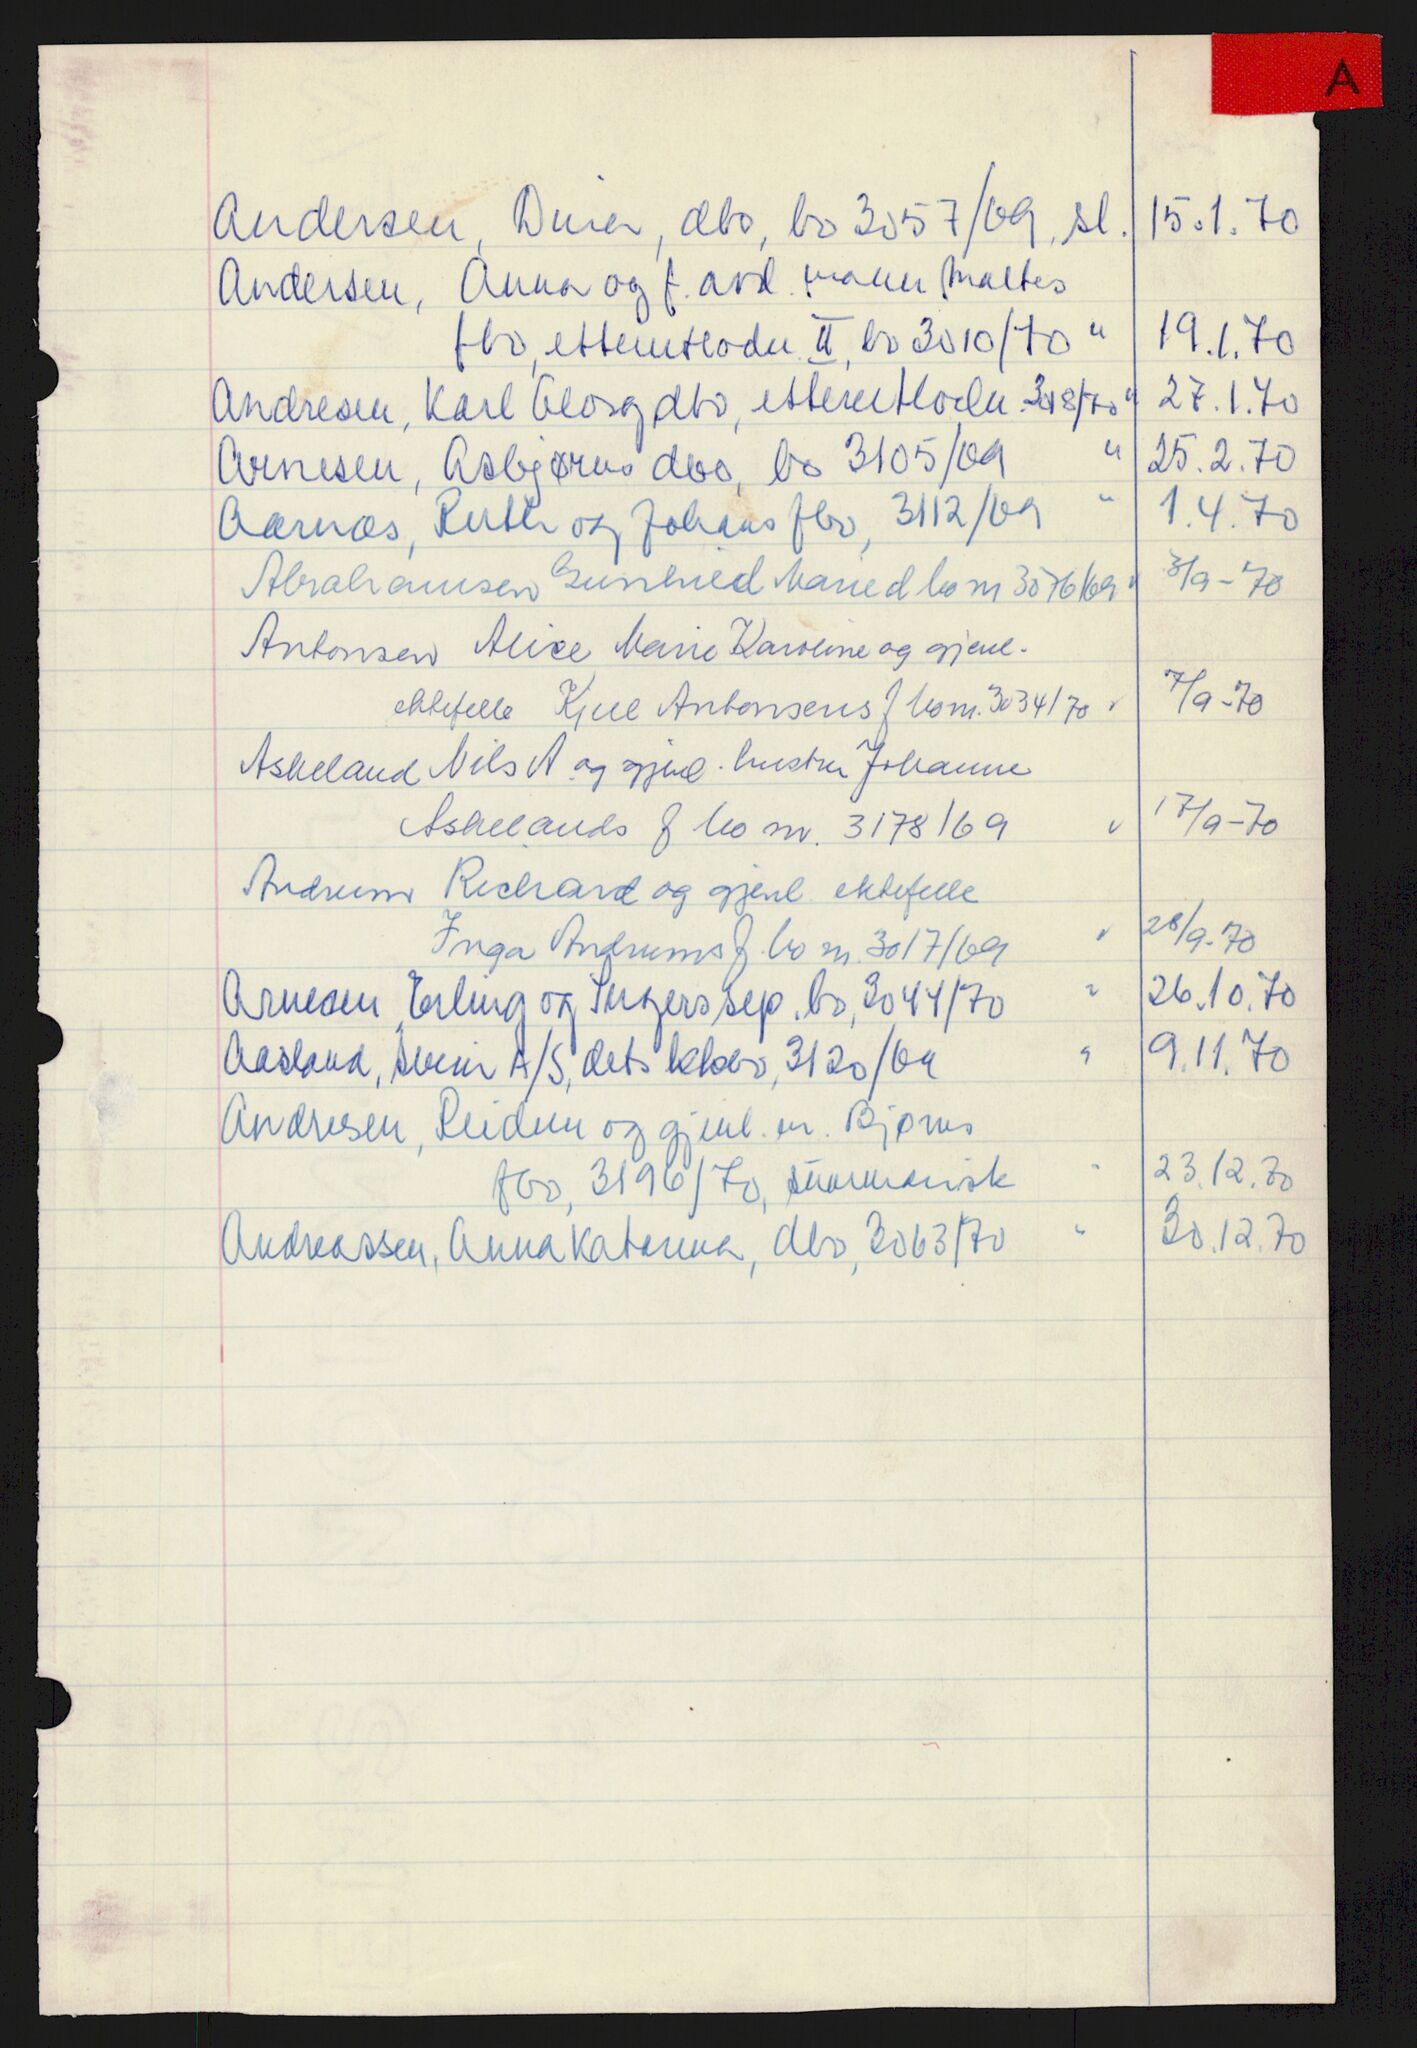 A
Andersen, dbo, bo 3057/69, sl. 15.1.70
Andersen, Anna og f. avd. mann Maltes
fbo, etterutlodn. II, bo 3010/70 " 19.1.70
Andresen, Karl Georg dbo, etterutlodn. 3018/70 " 27.1.70
Arnesen, Asbjørns dbo, bo 3105/69 " 25.2.70
Aarnas, Ruth og Johans fbo, 3112/69 " 1.4.70
Abrahamsen Gunhild Marie d bo nr 3076/69 " 3/9-70
Antonsen Alice Marie Karoline og gjenl.
ektefelle Kjell Antonsens f bo nr. 3034/70 " 7/9-70
Askeland Nils A og gjenl. hustru Johanne
Askelands f bo nr. 3178/69 " 17/9-70
Andrums Richard og gjenl ektefelle
Inga Andrums f. bo nr. 3017/69 " 28/9-70
Arnesen, Erling og Ingers sep. bo, 3044/70 " 26.10.70
Aasland, Svein A/S, dets kkbo, 3120/69 " 9.11.70
Andresen, Reidun og gjenl. m. Bjørns
fbo, 3196/70, summarisk " 23.12.70
Andreassen, Anna Katarina, dbo, 3063/70 " 30.12.70